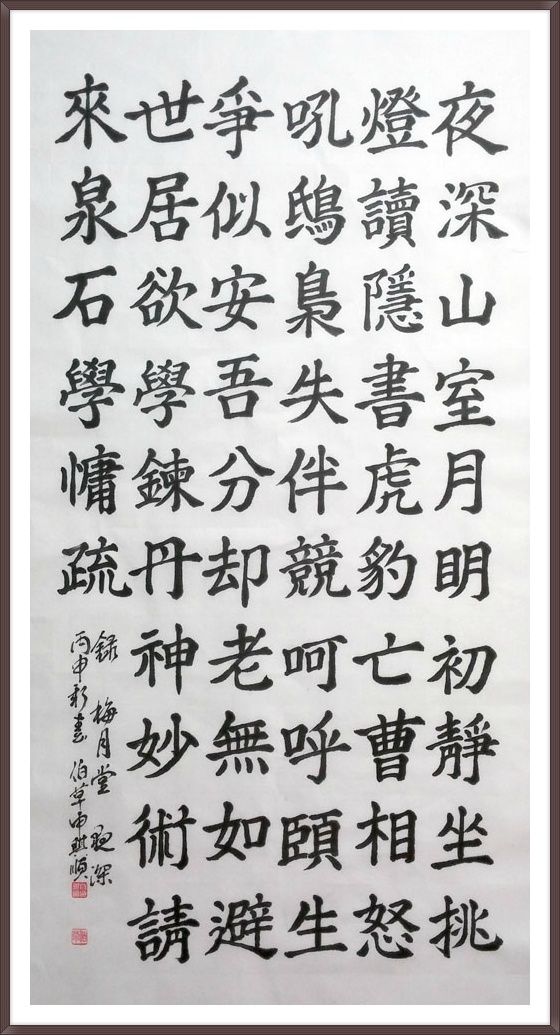 夜深山室月明初靜坐挑
燈讀隱書虎豹亡曹相怒
吼鴟梟失伴競呵呼頤生
爭似安吾分却老無如避
世居欲學鍊丹神妙術請
來泉石學慵疏
錄 梅月堂 夜深
丙申新春 伯草申琪